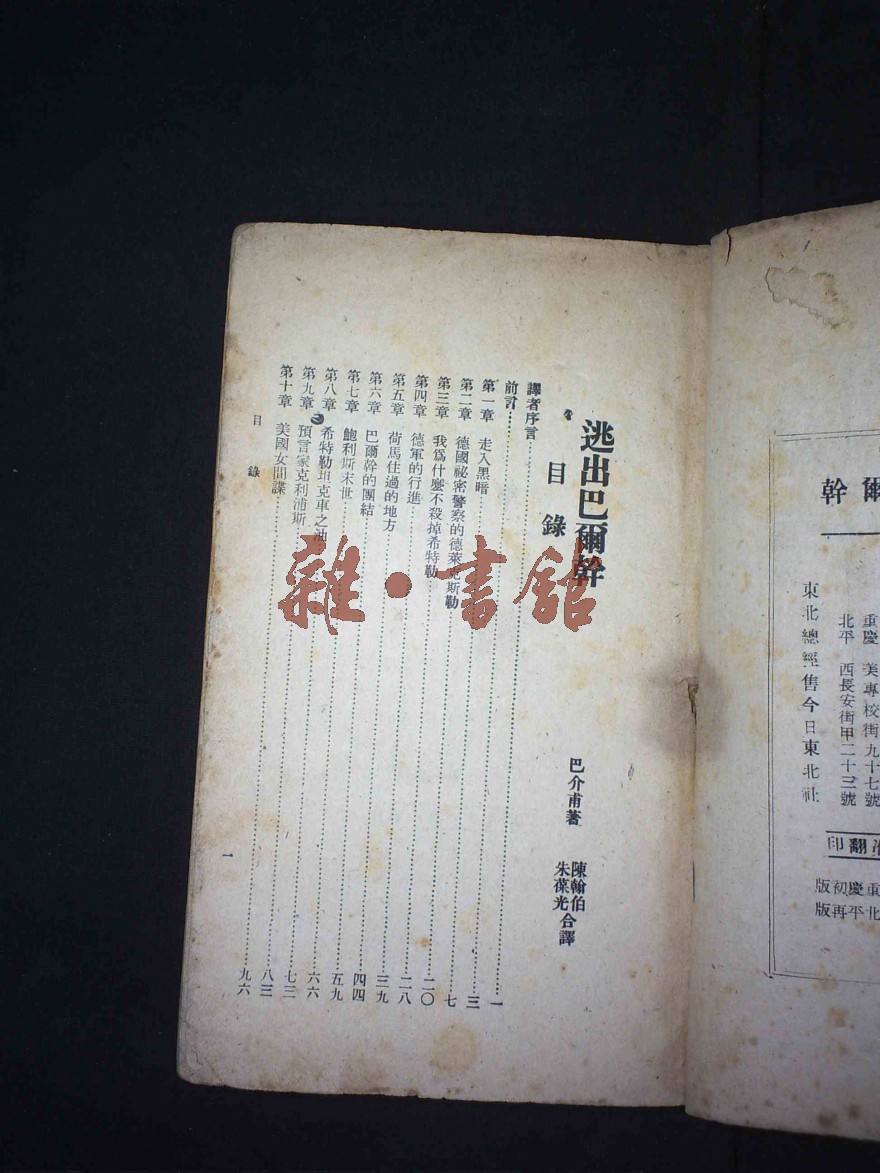 爾幹
重慶 美專校街九十七號
北平 西長安街甲二十三號
東北總經售今日東北社
翻印
重慶初版
北平再版
逃出巴爾幹
目錄
巴介甫著
陳翰伯
朱葆光合譯
譯者序言 一
前言 三
第一章 走入黑暗 七
第二章 德國祕密警察的德萊克斯勒 二〇
第三章 我爲什麼不殺掉希特勒 二八
第四章 德軍的行進 三九
第五章 荷馬住過的地方 四四
第六章 巴爾幹的團結 五九
第七章 鮑利斯末世 六六
第八章 希特勒坦克車之油 七三
第九章 預言家克利浦斯 八三
第十章 美國女間諜 九六
目錄
一
雜·書館